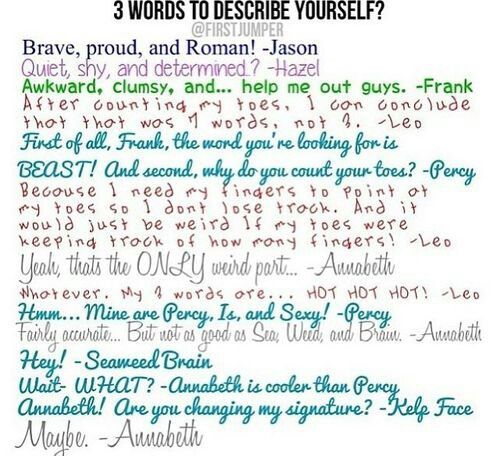 3 WORDS TO DESCRIBE YOURSELF?
@FIRSTJUMPER
Brave, proud, and Roman! -Jason
Quiet, shy, and determined..? -Hazel
Awkward, clumsy, and... help me out guys. -Frank
After counting my toes, I can conclude
that that was 7 words, not 3. -Leo
First of all, Frank, the word you're looking for is
BEAST! And second, why do you count your toes? -Percy
Because I need my fingers to point at
my toes so I dont lose track. And it
would just be weird if my toes were
keeping track of how many fingers! -Leo
Yeah, thats the ONLY weird part... -Annabeth
Whatever. My 3 words are... HOT HOT HOT! -Leo
Hmm... Mine are Percy, Is, and Sexy! -Percy
Fairly accurate... But not as good as Sea, Weed, and Brain. -Annabeth
Hey! -Seaweed Brain
Wait- WHAT? -Annabeth is cooler than Percy
Annabeth! Are you changing my signature? -Kelp Face
Maybe. -Annabeth